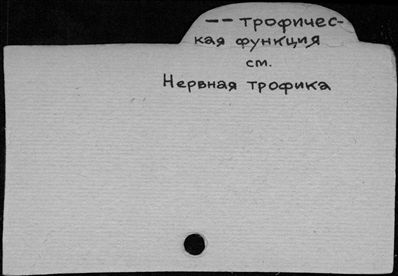 -- трофичес-
кая функция
см.
Нервная трофика